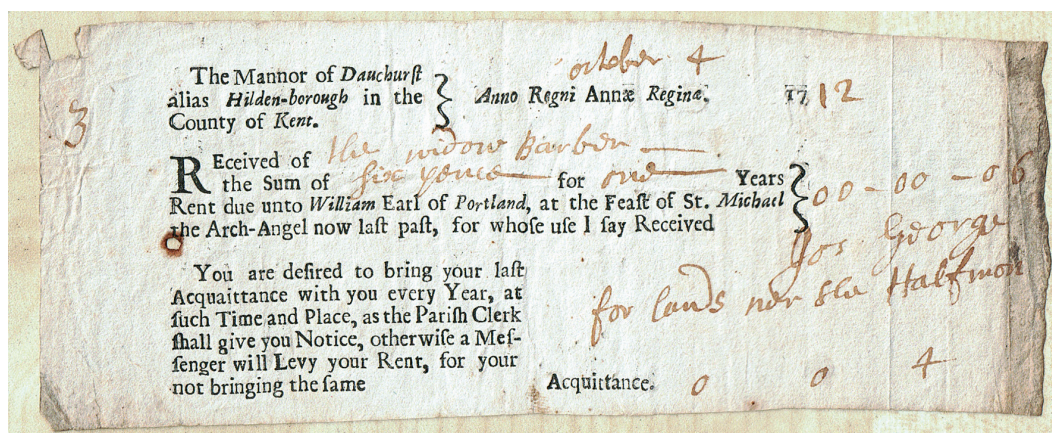 october 4
The Mannor of Dauchurſt
alias Hilden-borough in the
County of Kent.
Anno Regni Annæ Reginæ. 1712
3
REceived of the widow Barber
the Sum of ſix pence for one Years
Rent due unto William Earl of Portland, at the Feaſt of St. Michael
the Arch-Angel now laſt paſt, for whose uſe I ſay Received
00-00-06
Jos George
for lands ner the Halfmon
You are deſired to bring your laſt
Acquaittance with you every Year, at
ſuch Time and Place, as the Pariſh Clerk
ſhall give you Notice, otherwiſe a Meſ-
ſenger will Levy your Rent, for your
not bringing the ſame Acquittance. 0 0 4